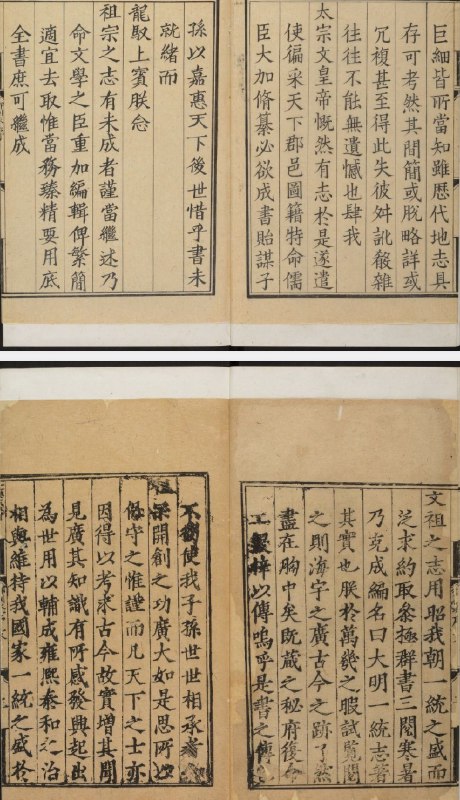 巨細皆所當知雖歷代地志具
存可考然其間簡或脫略詳或
冗複甚至得此失彼舛訛殽雜
往往不能無遺憾也肆我
太宗文皇帝慨然有志於是遂遣
使徧采天下郡邑圖籍特命儒
臣大加脩纂必欲成書貽謀子
孫以嘉惠天下後世惜乎書未
就緒而
龍馭上賓朕念
祖宗之志有未成者謹當繼述乃
命文學之臣重加編輯俾繁簡
適宜去取惟當務臻精要用底
全書庶可繼成
文祖之志用昭我朝一統之盛而
泛求約取參極群書三閱寒暑
乃克成編名曰大明一統志著
其實也朕於萬幾之暇試覽閱
之則海宇之廣古今之跡了然
盡在胸中矣既藏之秘府復命
工鋟梓以傳嗚呼是書之傳
不獨使我子孫世世相承者
祖宗開創之功廣大如是思所以
保守之惟謹而凡天下之士亦
因得以考求古今故實增其聞
見廣其知識有所感發興起出
為世用以輔成雍熙泰和之治
相與維持我國家一統之盛於